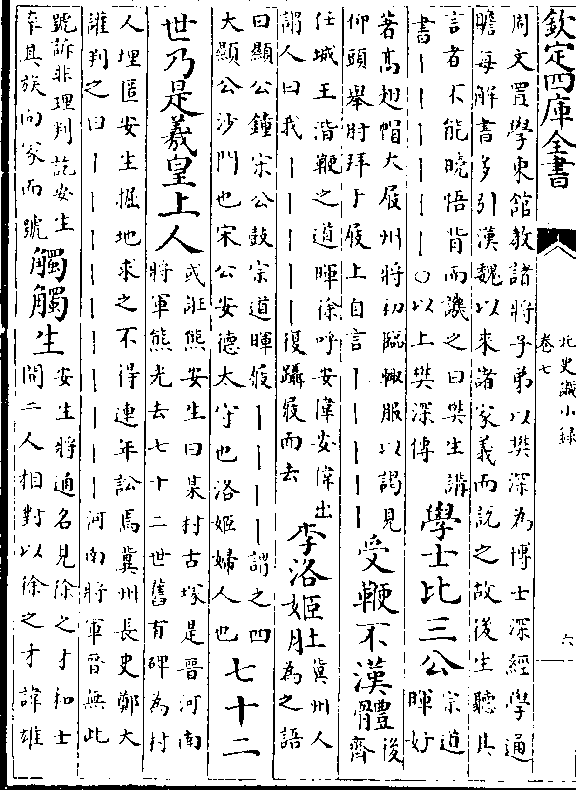 欽定四庫全書
北史識小錄
卷七
六
周文置學東館教諸將子弟以樊深為博士深經學通
贍每解書多引漢魏以來諸家義而說之故後生聽其
言者不能曉悟背而譏之曰樊生講
書丨丨丨丨丨〇以上樊深傳
學士比三公
宗道
暉好
著高翅帽大屐州將初臨輙服以謁見
仰頭舉肘拜于屐上自言丨丨丨丨丨
受鞭不漢體
後
齊
任城王湝鞭之道暉徐呼安偉安偉出
謂人曰我丨丨丨丨丨復躡屐而去
李洛姬肚
冀州人
為之語
曰顯公鐘宋公鼓宗道暉屐丨丨丨丨謂之四
大顯公沙門也宋公安德太守也洛姬婦人也
七十二
世乃是羲皇上人
或誑熊安生曰某村古塚是晉河南
將軍熊光去七十二世舊有碑為村
人埋匿安生掘地求之不得連年訟焉冀州長史鄭大
讙判之曰丨丨丨丨丨丨丨丨丨丨河南將軍晉無此
號訴非理判訖安生
率其族向冢而號
觸觸生
安生將通名見徐之才和士
問二人相對以徐之才諱雄